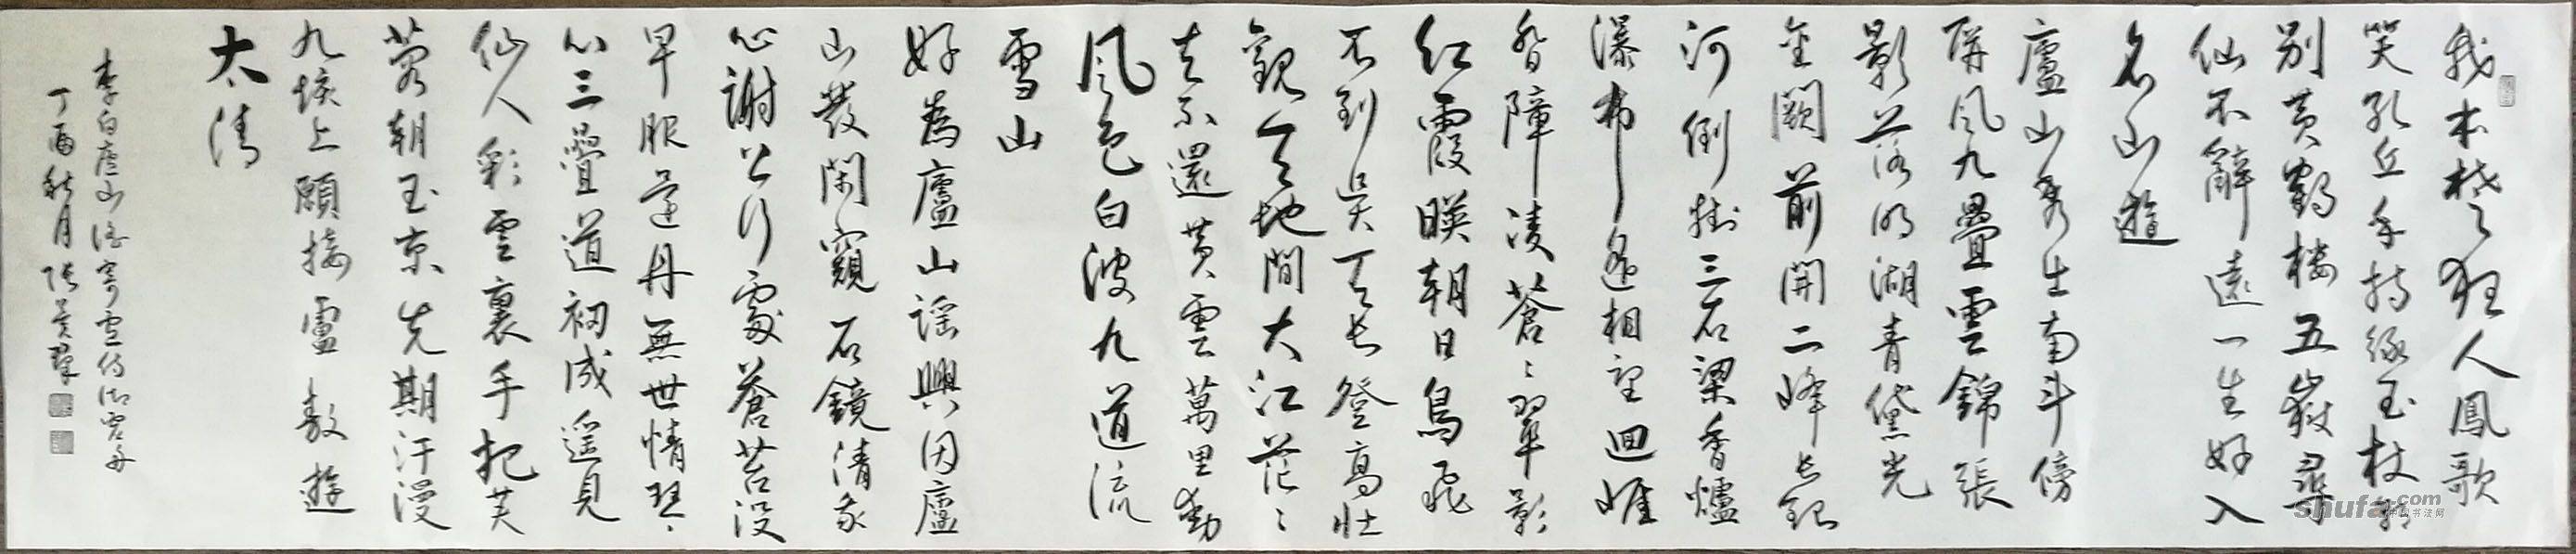 我本楚狂人鳳歌
笑孔丘手持綠玉杖朝
别黄鶴樓五嶽尋
仙不辭遠一生好入
名山遊
廬山秀出南斗傍
屏風九疊雲錦張
影落明湖青黛光
金闕前開二峰長銀
河倒掛三石梁香爐
瀑布遙相望迴崖
沓嶂凌蒼〻翠影
紅霞暎朝日鳥飛
不到吴天長登高壯
觀天地間大江茫〻
去不還黄雲萬里動
風色白波九道流
雪山
好為廬山謠興因廬
山發閑窺石鏡清我
心謝公行處蒼苔没
早服還丹無世情琴
心三疊道初成遥見
仙人彩雲裏手把芙
蓉朝玉京先期汗漫
九垓上願接盧敖遊
太清
李白庐山谣寄卢侍御虚舟
丁酉秋月张
shufa.com
中国书法网